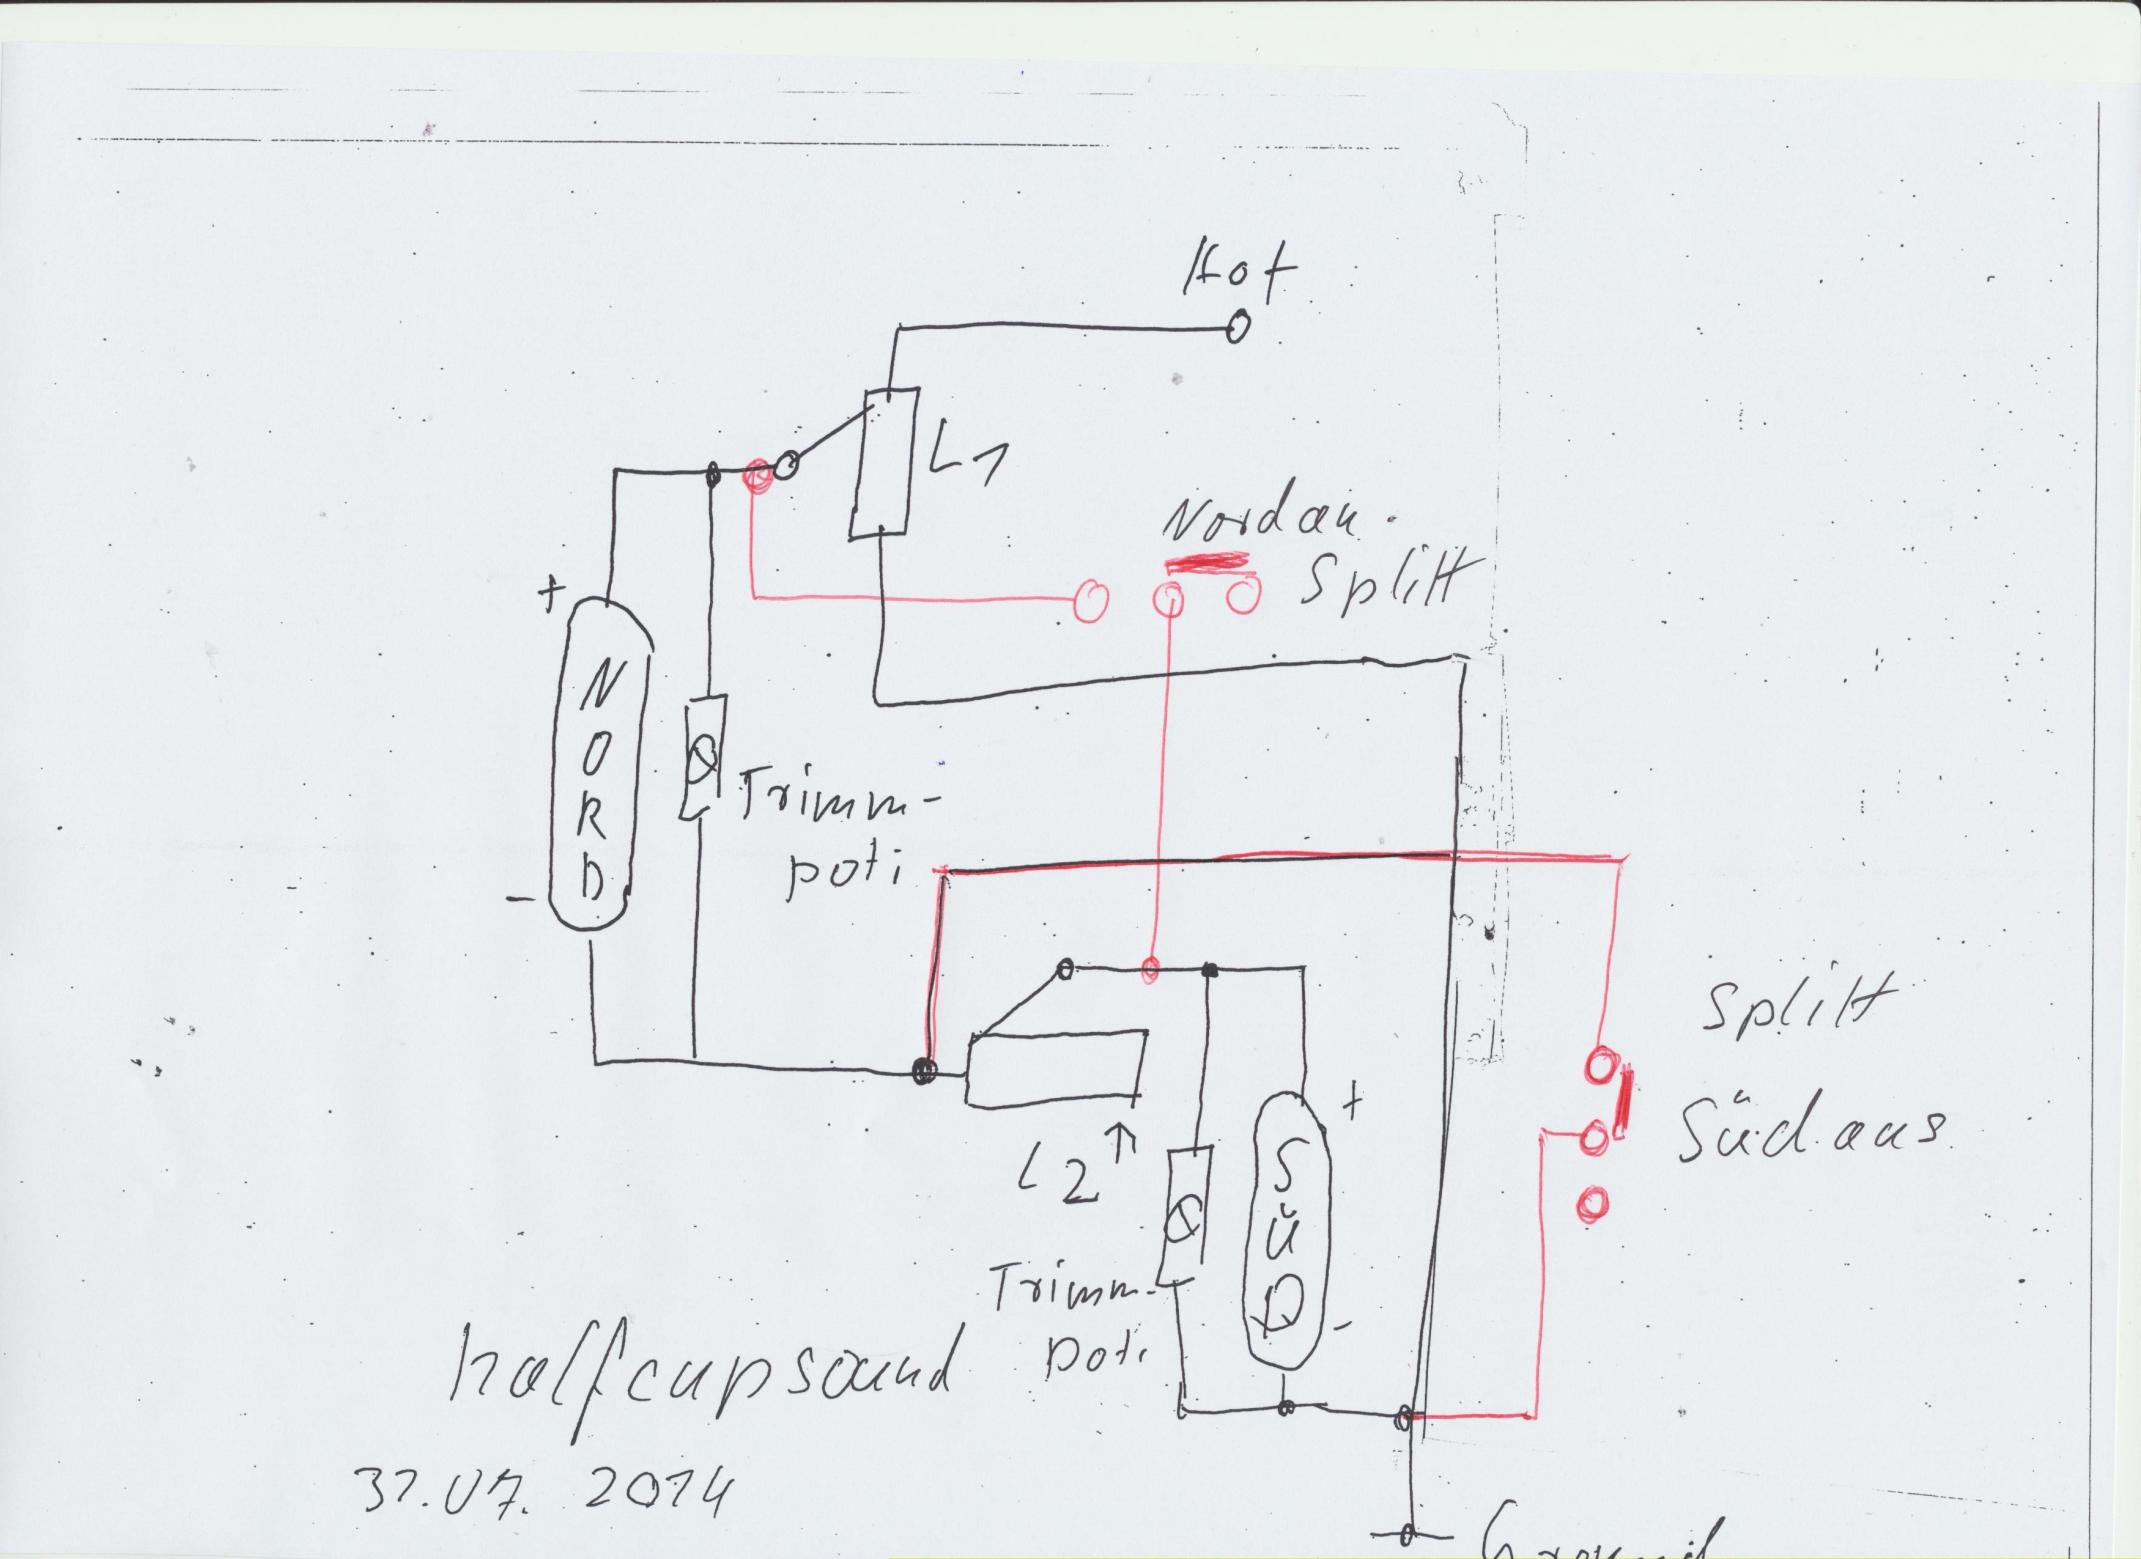 Hot
L1
Nord an.
Splitt
+
NORD
-
Trimm-
poti
Splitt
Süd aus
+
SÜD
-
L2 ↑
Trimm-
poti
halfcupsound
31.07.2014
Ground